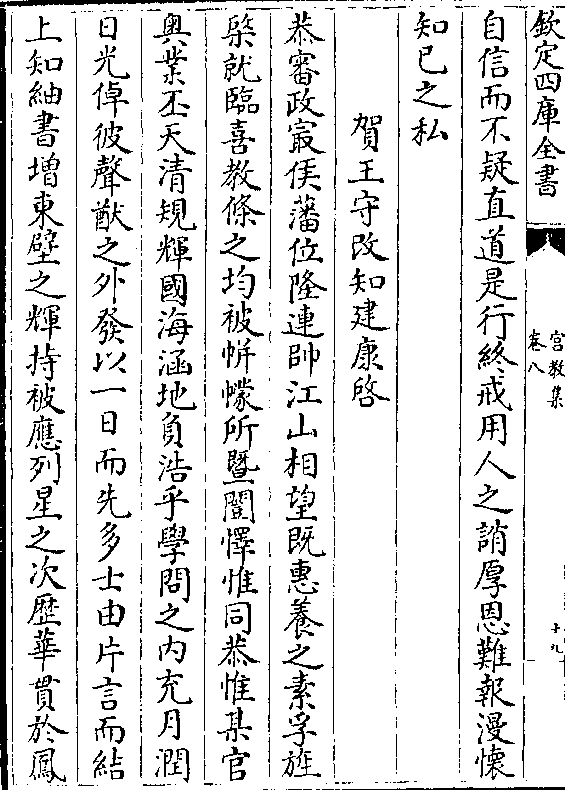 欽定四庫全書
宮教集
卷八
十九
自信而不疑直道是行終戒用人之誚厚恩難報漫懷
知已之私
賀王守改知建康啓
恭審政㝡侯藩位隆連帥江山相望既惠養之素孚旌
棨就臨喜教條之均被帡幪所暨闓懌惟同恭惟某官
輿業丕天清規輝國海涵地負浩乎學問之内充月潤
日光倬彼聲猷之外發以一日而先多士由片言而結
上知紬書増東壁之輝持被應列星之次歴華貫於鳳